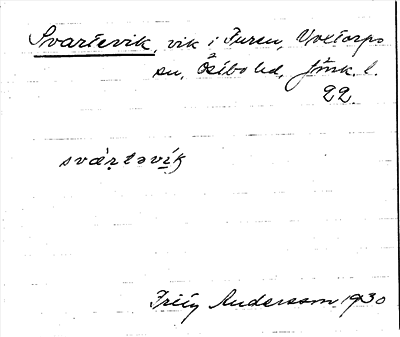 Svartevik, vik i Furen, Voxtorps
sn, Östbo hd, Jönk. l.
22.
svártəvík
Andersson 1930